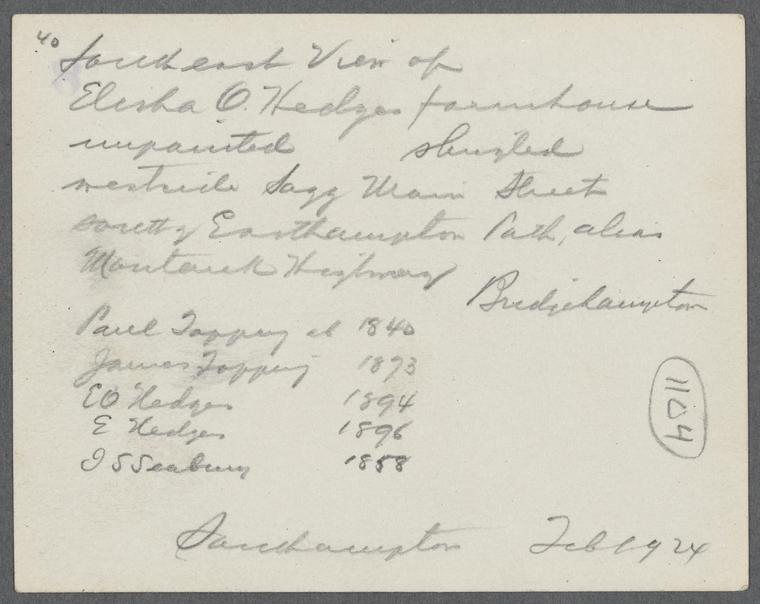 40
Southeast View of
Elisha O. Hedges farmhouse
unpainted shingled
westside Sagg Main Street
south of Easthampton Path, alias
Montauk Highway
Bridgehampton
Paul Topping ab 1840
James Topping 1873
EO Hedges 1894
E Hedges 1896
I S Seabury 1858
1104
Southampton Feb 1924